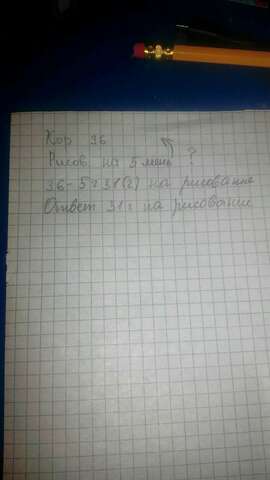 Хор 36
Рисов на 5 мень ?
36-5=31(г) на рисование
Ответ 31г на рисовании